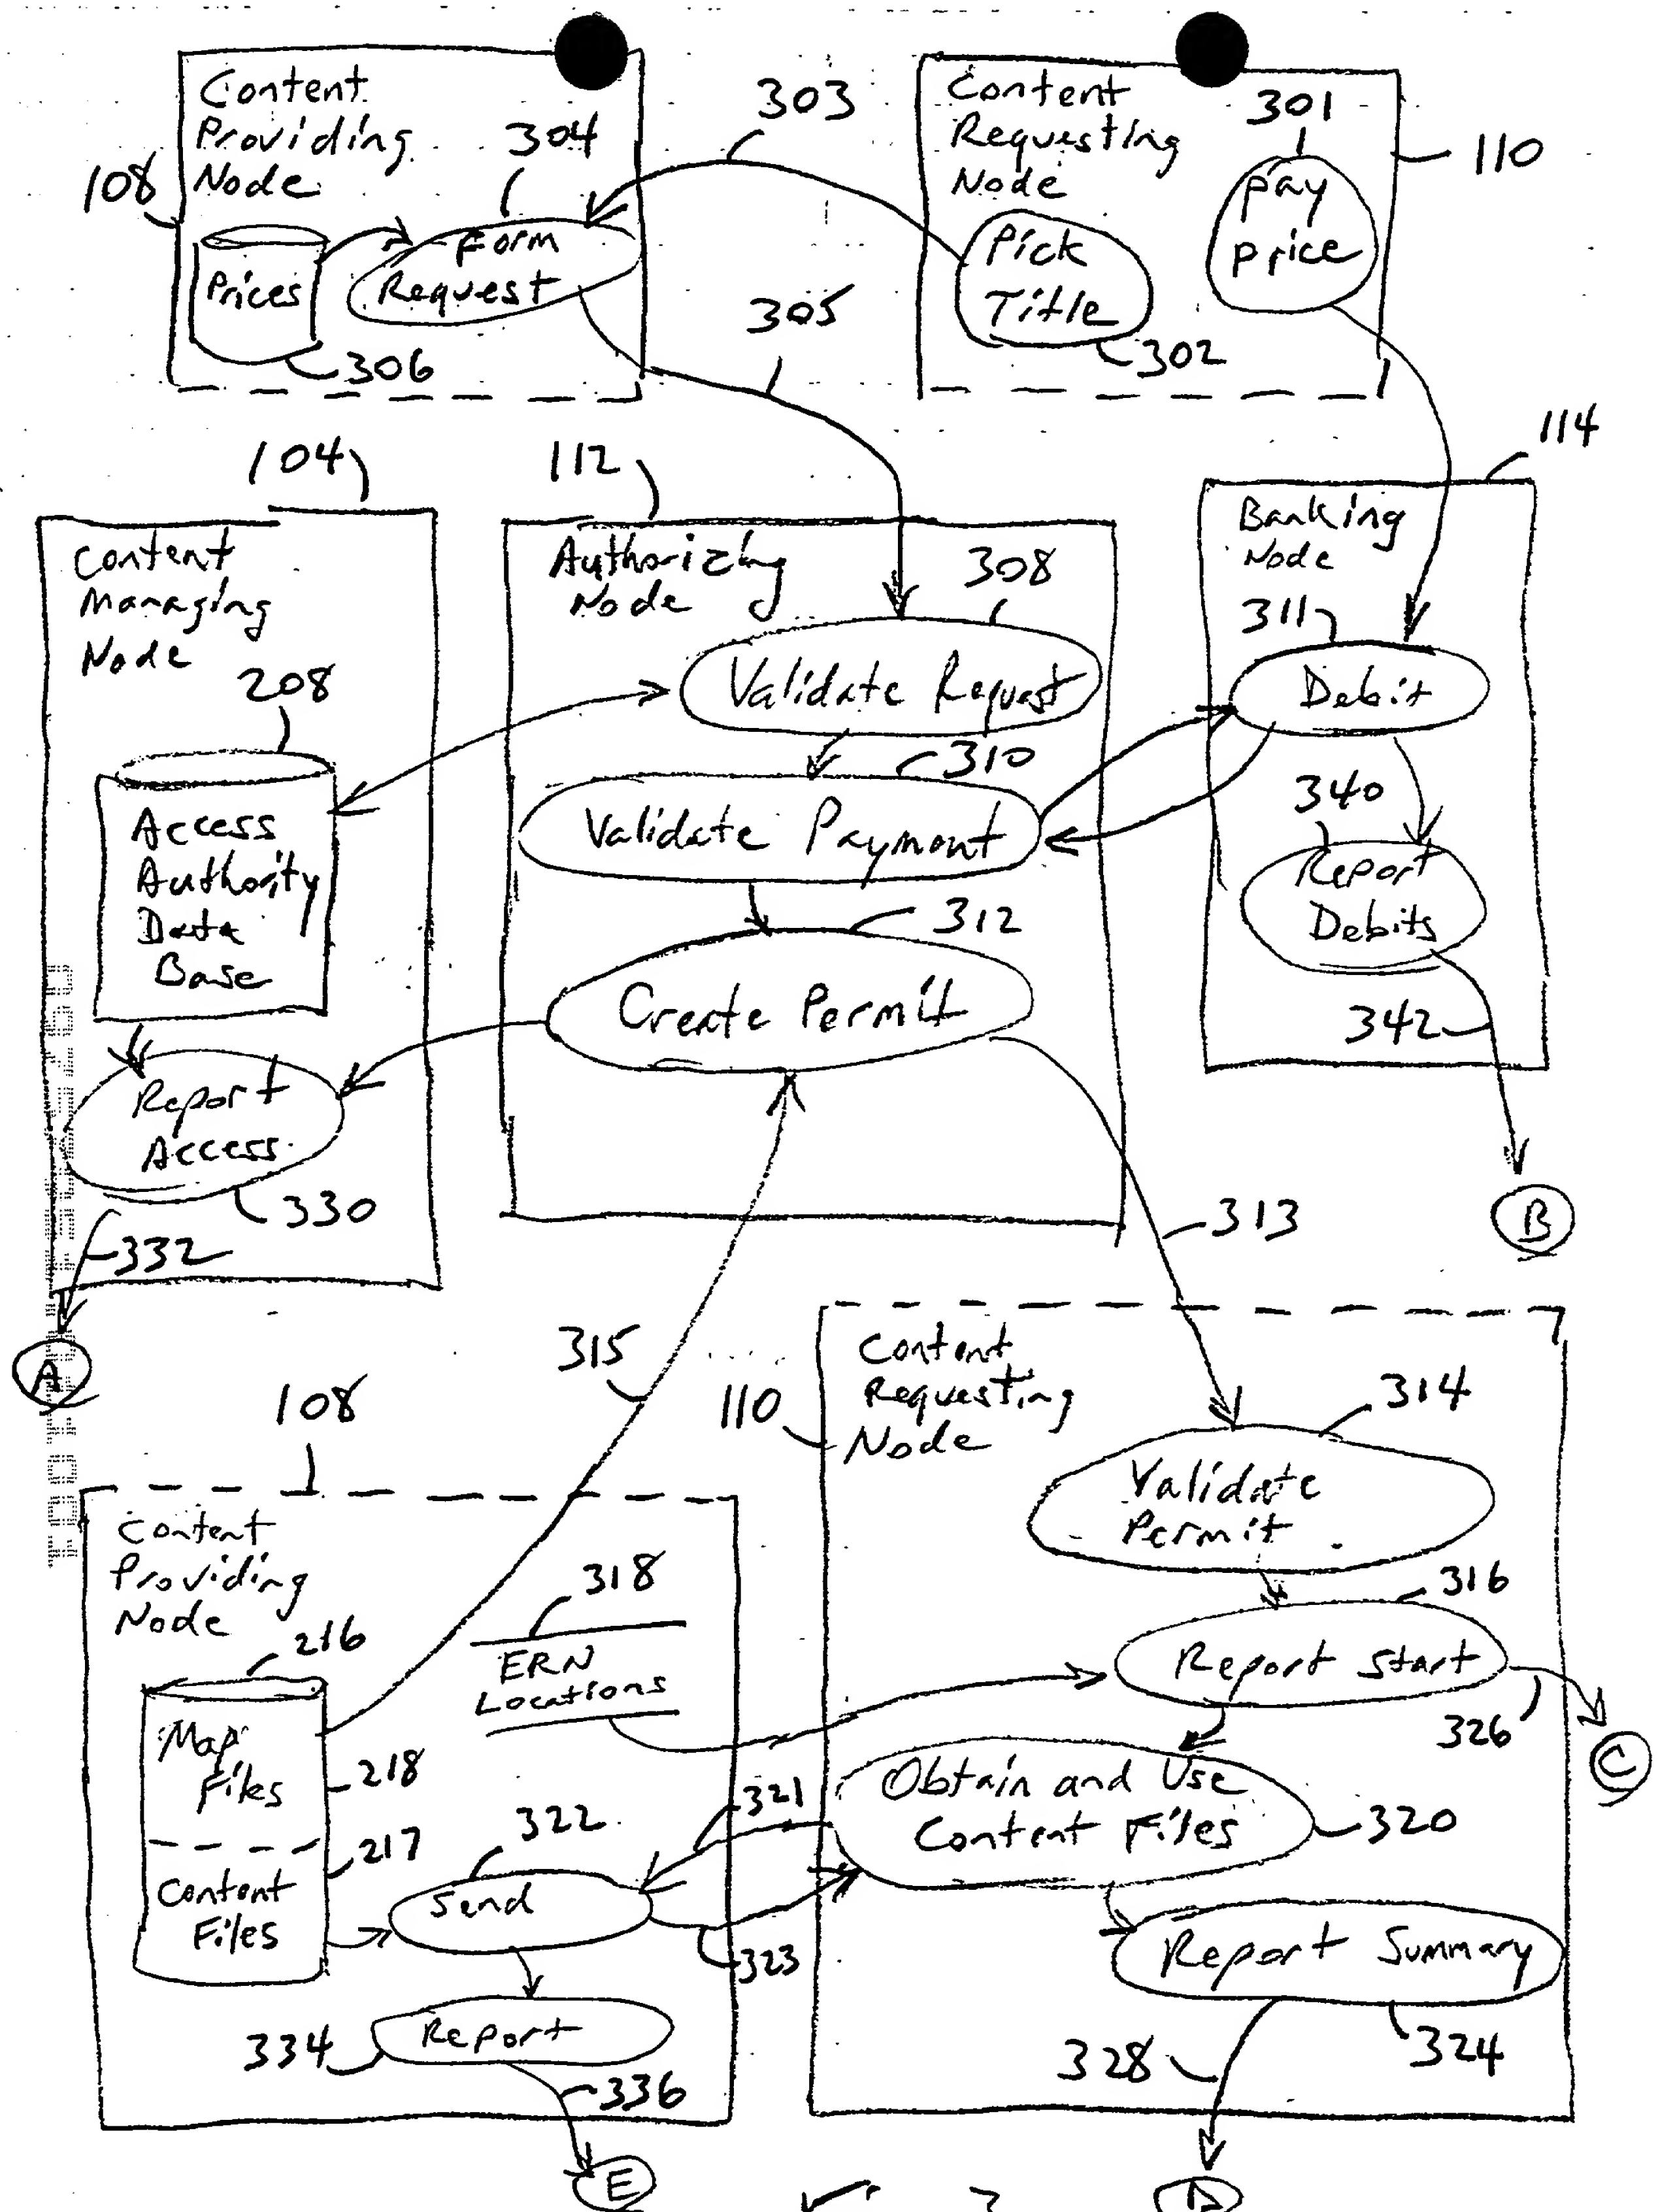 Content
Providing
Node
108
304
Form
Request
Prices
306
303
305
Content
Requesting
Node
301
pay
price
110
Pick
Title
302
104
Content
Managing
Node
208
Access
Authority
Data
Base
Report
Access
330
332
A
112
Authorizing
Node
308
Validate Request
310
Validate Payment
312
Create Permit
313
315
114
Banking
Node
311
Debit
340
Report
Debits
342
B
108
Content
Providing
Node
216
Map
Files
218
217
Content
Files
318
ERN
Locations
322
Send
321
323
334
Report
336
E
110
Content
Requesting
Node
314
Validate
Permit
316
Report Start
326
C
Obtain and Use
Content Files
320
Report Summary
324
328
D